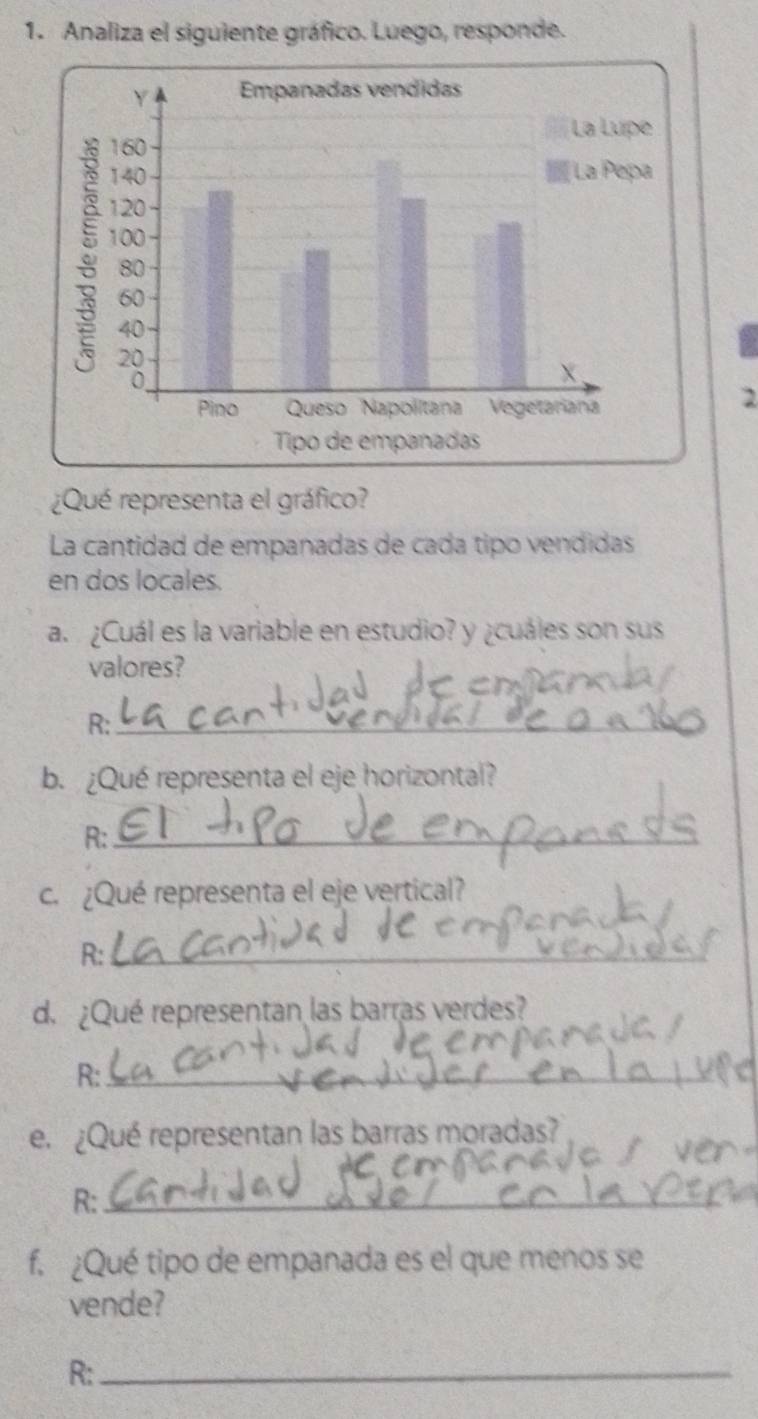 1. Analiza el siguiente gráfico. Luego, responde.
Empanadas vendidas
Y
La Lupe
La Pepa
Cantidad de empanadas
160
140
120
100
80
60
40
20
0
X
Pino Queso Napolitana Vegetariana
Tipo de empanadas
2
¿Qué representa el gráfico?
La cantidad de empanadas de cada tipo vendidas
en dos locales.
a. ¿Cuál es la variable en estudio? y ¿cuáles son sus
valores?
R: La cantidad de empanadas
vendidas de
b. ¿Qué representa el eje horizontal?
R: El tipo de empanada
c. ¿Qué representa el eje vertical?
R: La cantidad de empanadas
vendidas
d. ¿Qué representan las barras verdes?
R: La cantidad de empanadas
vendidas en la lupe
e. ¿Qué representan las barras moradas?
R: Cantidad de empanadas ven-
didas en la pepa
f. ¿Qué tipo de empanada es el que menos se
vende?
R: